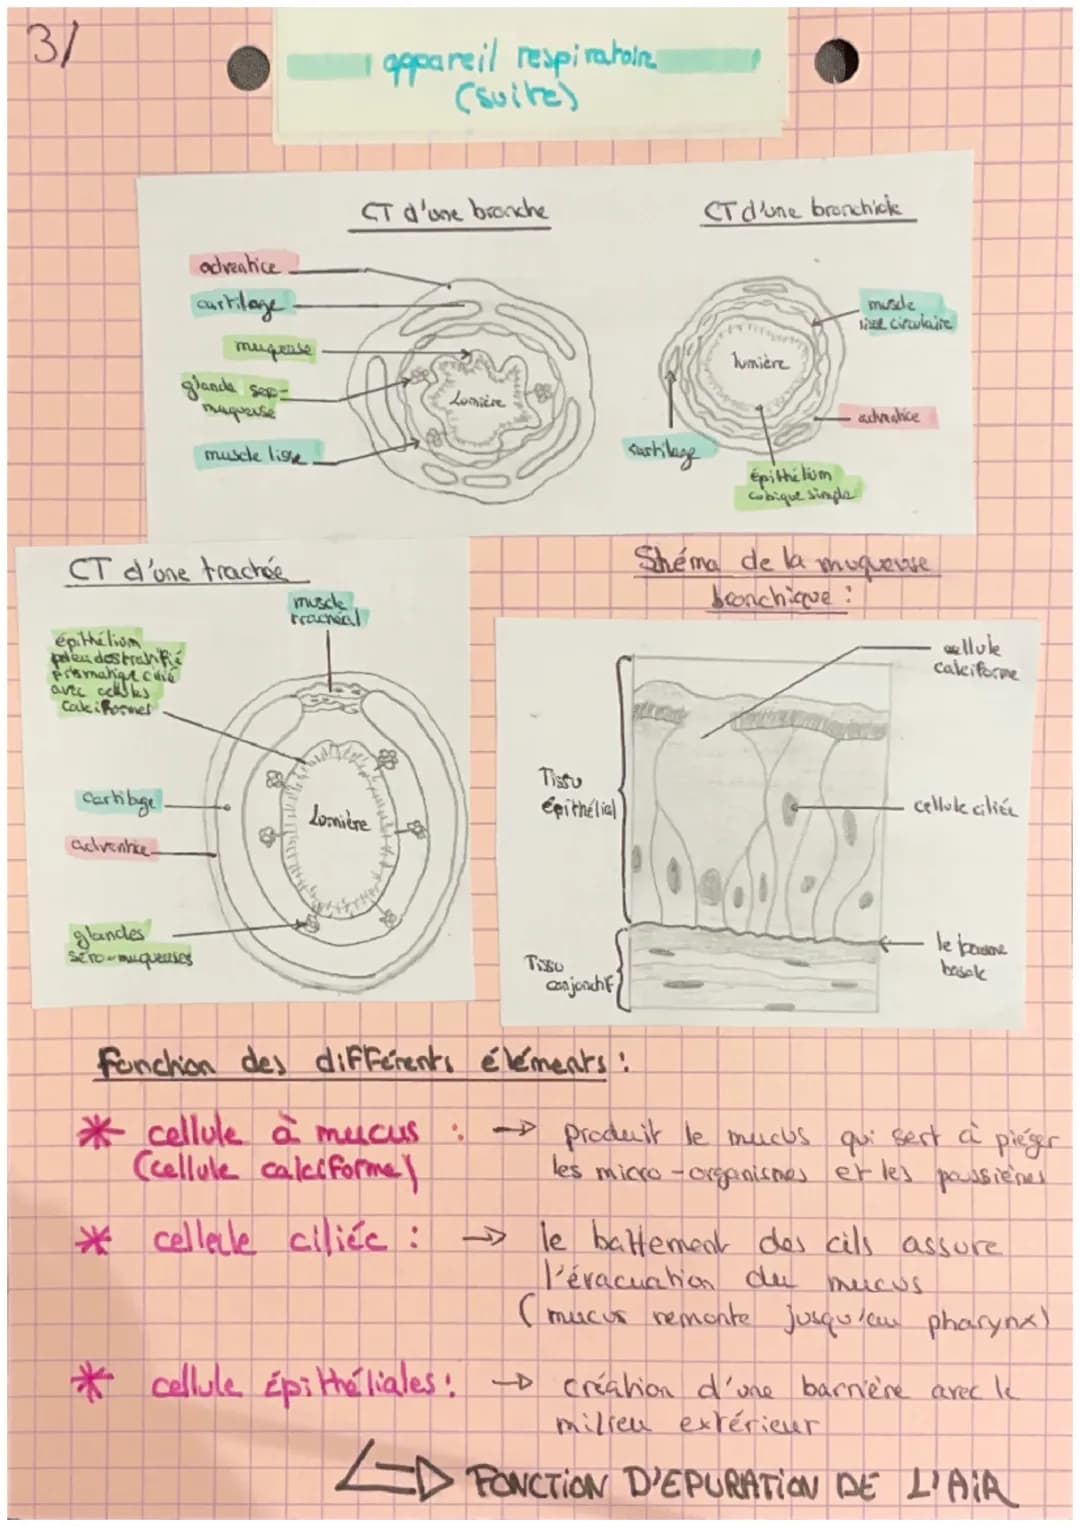 3/
appareil respiratoire
(suite)
CT d'une bronche
CT d'une bronchiole
adventice
cartilage
muqueuse
glande séro-
muqueuse
muscle lisse
Lumière
muscle
lisse circulaire
lumière
adventice
cartilage
épithélium
cubique simple
CT d'une trachée
muscle
trachéal
épithélium
pseudostratifié
prismatique cilié
avec cellules
caliciformes
cartilage
adventice
glandes
séro-muqueuses
Lumière
Shéma de la muqueuse
bronchique :
cellule
caliciforme
Tissu
épithélial
cellule ciliée
Tissu
conjonctif
le
basale
Fonction des différents éléments :
* cellule à mucus : → produit le mucus qui sert à piéger
(cellule caliciforme) les micro-organismes et les poussières
* cellule ciliée : → le battement des cils assure
l'évacuation du mucus
(mucus remonte jusqu'au pharynx)
* cellule épithéliales : → création d'une barrière avec le
milieu extérieur
⇒ FONCTION D'EPURATION DE L'AIR